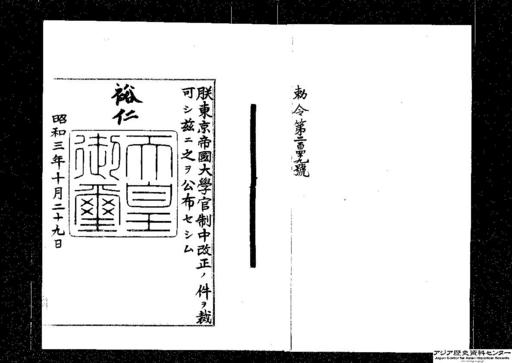 勅令第二百四九號
朕東京帝國大學官制中改正ノ件ヲ裁
可シ玆ニ之ヲ公布セシム
裕仁
天皇御璽
昭和三年十月二十九日
アジア歴史資料センター
Japan Center for Asian Historical Records